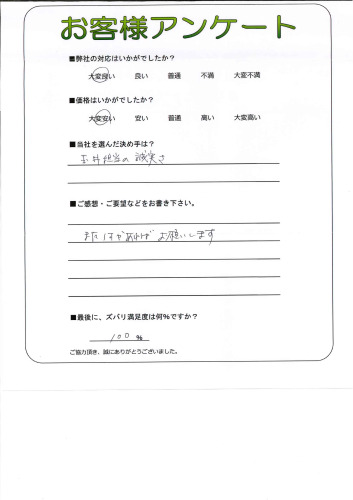 お客様アンケート
■弊社の対応はいかがでしたか？
大変良い 良い 普通 不満 大変不満
■価格はいかがでしたか？
大変安い 安い 普通 高い 大変高い
■当社を選んだ決め手は？
担当の誠実さ
■ご感想・ご要望などをお書き下さい。
また あれば お願いします
■最後に、ズバリ満足度は何％ですか？
100 %
ご協力頂き、誠にありがとうございました。